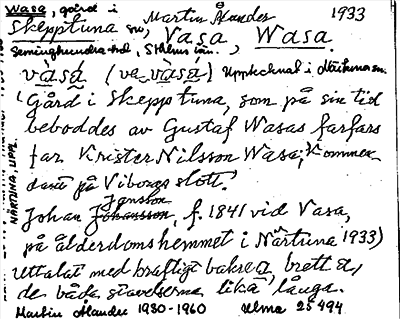 Wasa, gård i Martin Ålander 1933
Skepptuna sn, Vasa Wasa.
Seminghundra hd, Sthlms län.,
vàsá (ve vàsá) Upptecknat i Närtuna sn.
(Gård i Skepptuna, som på sin tid
beboddes av Gustaf Wasas farfars
far Krister Nilsson Wasa, Kommen-
dant på Viborgs slott.
Jansson
Johan Johansson, f. 1841 vid Vasa,
på ålderdomshemmet i Närtuna 1933)
Uttalat med kraftigt bakre a, brett a,
de båda stavelserna lika långa.
Martin Ålander 1930-1960 Ulma 25494.
NÄRTUNA, UPPL.